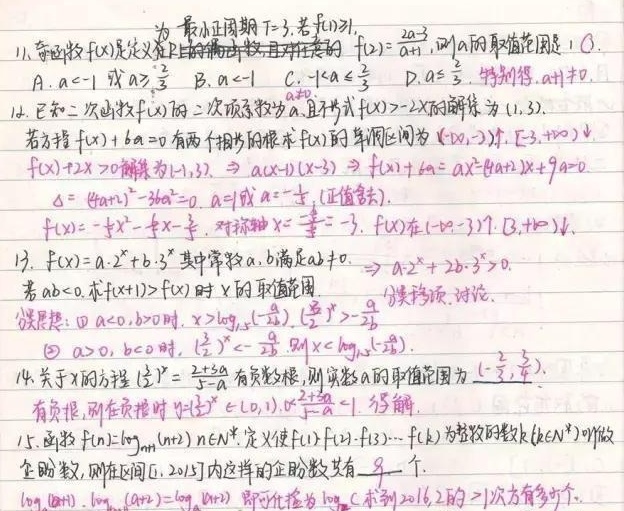 为 最小正周期T=3,若f(1)≥1,
11.奇函数f(x)是定义在R上的 f(2)=\frac{2a-3}{a+1},则a的取值范围是:C.
A.a<-1 或a≥\frac{2}{3} B.a<-1 C.-1<a≤\frac{2}{3} D.a≤\frac{2}{3}. 特别得,a+1≠0.
a≠0.
12.已知二次函数f(x)的二次项系数为a,且不等式f(x)>-2x的解集为(1,3).
若方程f(x)+6a=0有两个相等的根求f(x)的单调区间为(-∞,-3)↑,[-3,+∞)↓
f(x)+2x>0解集为(-1,3). ⇒ a(x-1)(x-3) ⇒ f(x)+6a=ax²-(4a+2)x+9a=0
Δ=(4a+2)²-36a²=0. a=1或a=-\frac{1}{5}.(正值舍去).
f(x)=-\frac{1}{5}x²-\frac{6}{5}x-\frac{3}{5}. 对称轴 x= =-3. f(x)在(-∞-3)↑.[3,+∞)↓.
13. f(x)=a·2^x+b·3^x 其中常数a,b满足ab≠0. ⇒ a·2^x+2b·3^x>0.
若ab<0.求f(x+1)>f(x)时x的取值范围 分类移项,讨论.
分类思想:① a<0,b>0时, x>log_{1.5}(-\frac{a}{2b}).(\frac{3}{2})^x>-\frac{a}{2b}
② a>0,b<0时,(\frac{3}{2})^x<-\frac{a}{2b}.则x<log_{1.5}(-\frac{a}{2b}).
14.关于x的方程(\frac{3}{2})^x=\frac{2+3a}{5-a}有负数根,则实数a的取值范围为(-\frac{2}{3},\frac{3}{4}).
有负根,则在负推时y=(\frac{3}{2})^x∈(0,1),0<\frac{2+3a}{5-a}<1.得解.
15.函数f(n)=log_{n+1}(n+2) n∈N*.定义使f(1)·f(2)·f(3)…f(k)为整数的数k(k∈N*)叫做
企盼数,则在区间[1,2015]内这样的企盼数共有 9 个.
log_a(a+1)·log_{(a+1)}(a+2)=log_a(a+2) 即可化简为 log_2 C 求到2016,2的>1次方有多少个.